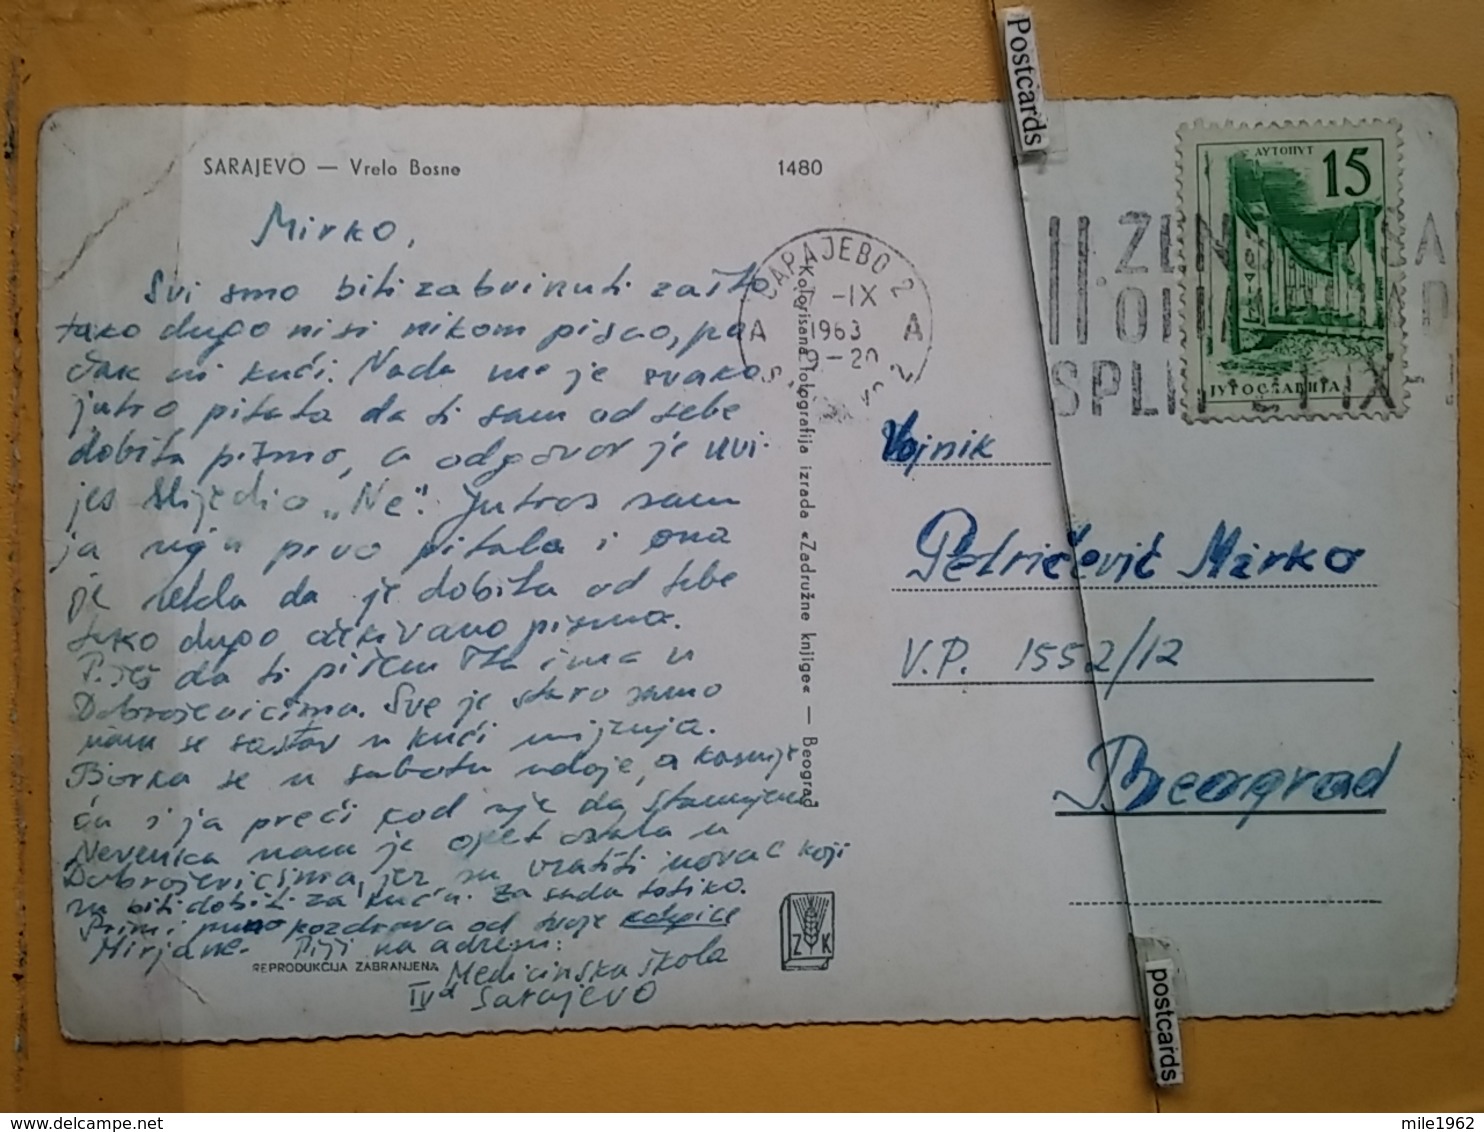 Postcards
SARAJEVO — Vrelo Bosne
1480
Mirko,
Svi smo bili zabrinuti zašto
tako dugo nisi nikom pisao, pa
čak ni kući. Nada me je svako
jutro pitala da li sam od tebe
dobila pismo, a odgovor je uvi-
jek slijedio "Ne". Jutros sam
ja nju prvo pitala i ona
je rekla da je dobila od tebe
tako dugo očekivano pismo.
Pišeš da ti pišem šta ima u
Dobrojevićima. Sve je staro samo
nam se sastav u kući mijenja.
Borka se u subotu udaje, a kasnije
ću i ja preći kod nje da stanujem.
Nevenka nam je opet ostala u
Dobrojevićima, jer su vratiti novac koji
su bili dobili za kuću. Za sada toliko.
Primi puno pozdrava od tvoje
Mirjane. Piši na adresu:
Medicinska škola
IVd Sarajevo
REPRODUKCIJA ZABRANJENA
Kolorisana fotografija izrada «Zadružne knjige« — Beograd
Z K
САРАЈЕВО 2
-IX
1963
-20
A A
II
SPLIT
АУТОПУТ
15
ЈУГОСЛАВИЈА
Vojnik
Petričević Mirko
V.P. 1552/12
Beograd
postcards
mile1962